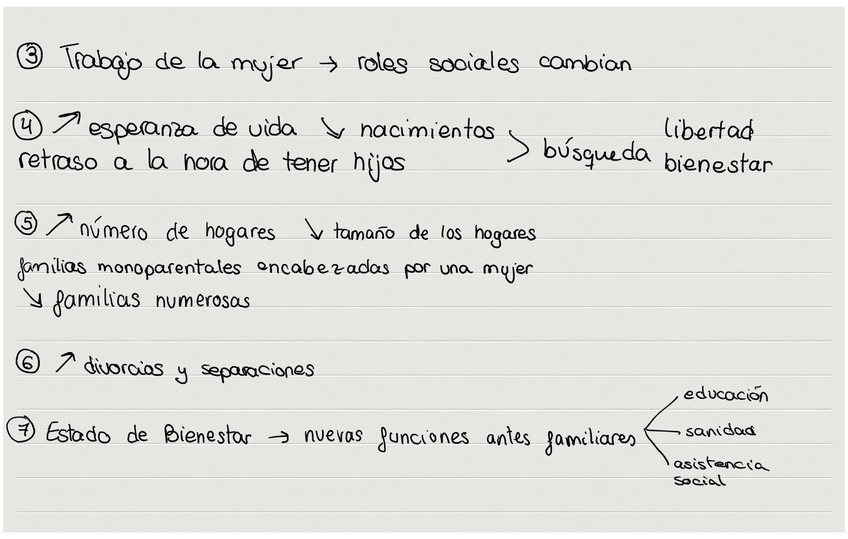 ③ Trabajo de la mujer → roles sociales cambian
④ ↗ esperanza de vida ↘ nacimientos
retraso a la hora de tener hijos > búsqueda libertad
bienestar
⑤ ↗ número de hogares ↘ tamaño de los hogares
familias monoparentales encabezadas por una mujer
↘ familias numerosas
⑥ ↗ divorcios y separaciones
⑦ Estado de Bienestar → nuevas funciones antes familiares
educación
sanidad
asistencia
social